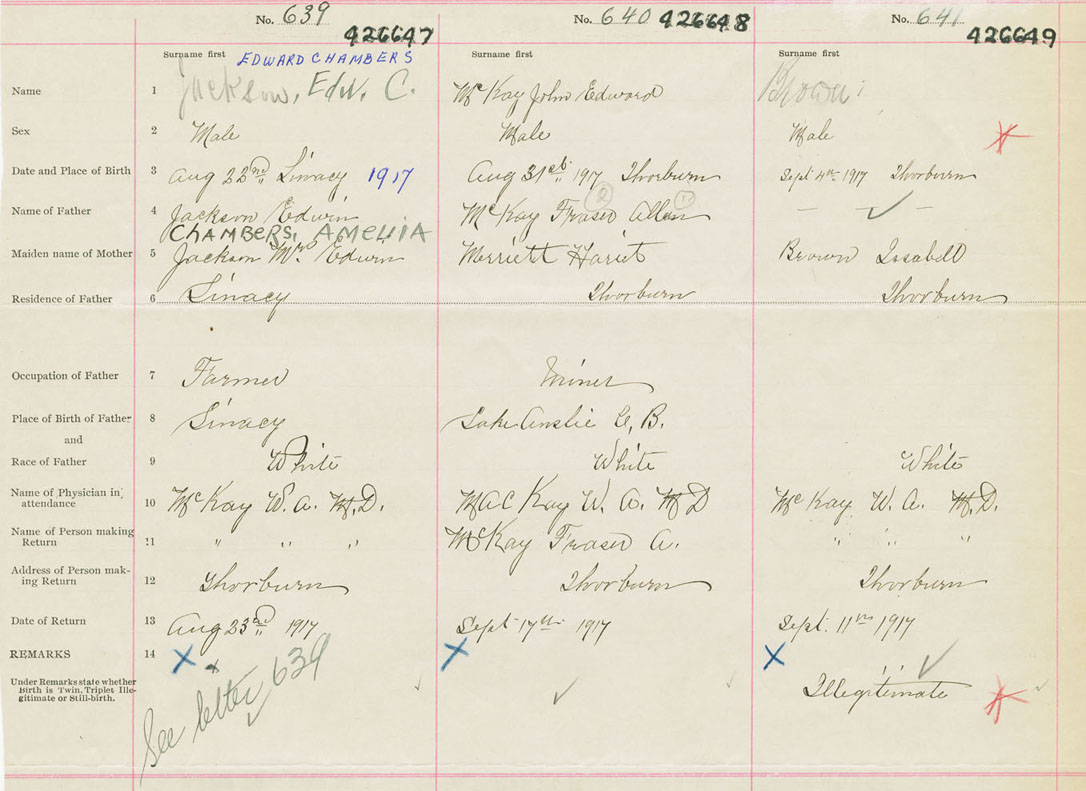 No. 639 No. 640 No. 641
426647 426648 426649
Surname first Surname first Surname first
EDWARD CHAMBERS
Name 1 Jackson, Edw. C. McKay John Edward Brown
Sex 2 Male Male Male
Date and Place of Birth 3 Aug 22nd Linacy 1917 Aug 31st 1917 Thorburn Sept 4th 1917 Thorburn
Name of Father 4 Jackson Edwin McKay Fraser Allan — ✓ —
2 1
CHAMBERS, AMELIA
Maiden name of Mother 5 Jackson Mrs Edwin Merriett Hariet Brown Issabell
Residence of Father 6 Linacy Thorburn Thorburn
Occupation of Father 7 Farmer Miner
Place of Birth of Father 8 Linacy Lake Ainslie C, B.
and
Race of Father 9 White White White
Name of Physician in attendance 10 McKay W. A. M.D. MacKay W. A. M D McKay W. A. M.D.
Name of Person making Return 11 " " " McKay Fraser A. " " "
Address of Person making Return 12 Thorburn Thorburn Thorburn
Date of Return 13 Aug 23rd 1917 Sept 17th 1917 Sept. 11th 1917
REMARKS 14 X X X
Under Remarks state whether Birth is Twin, Triplet Illegitimate or Still-birth.
See letter 639
Illegitimate